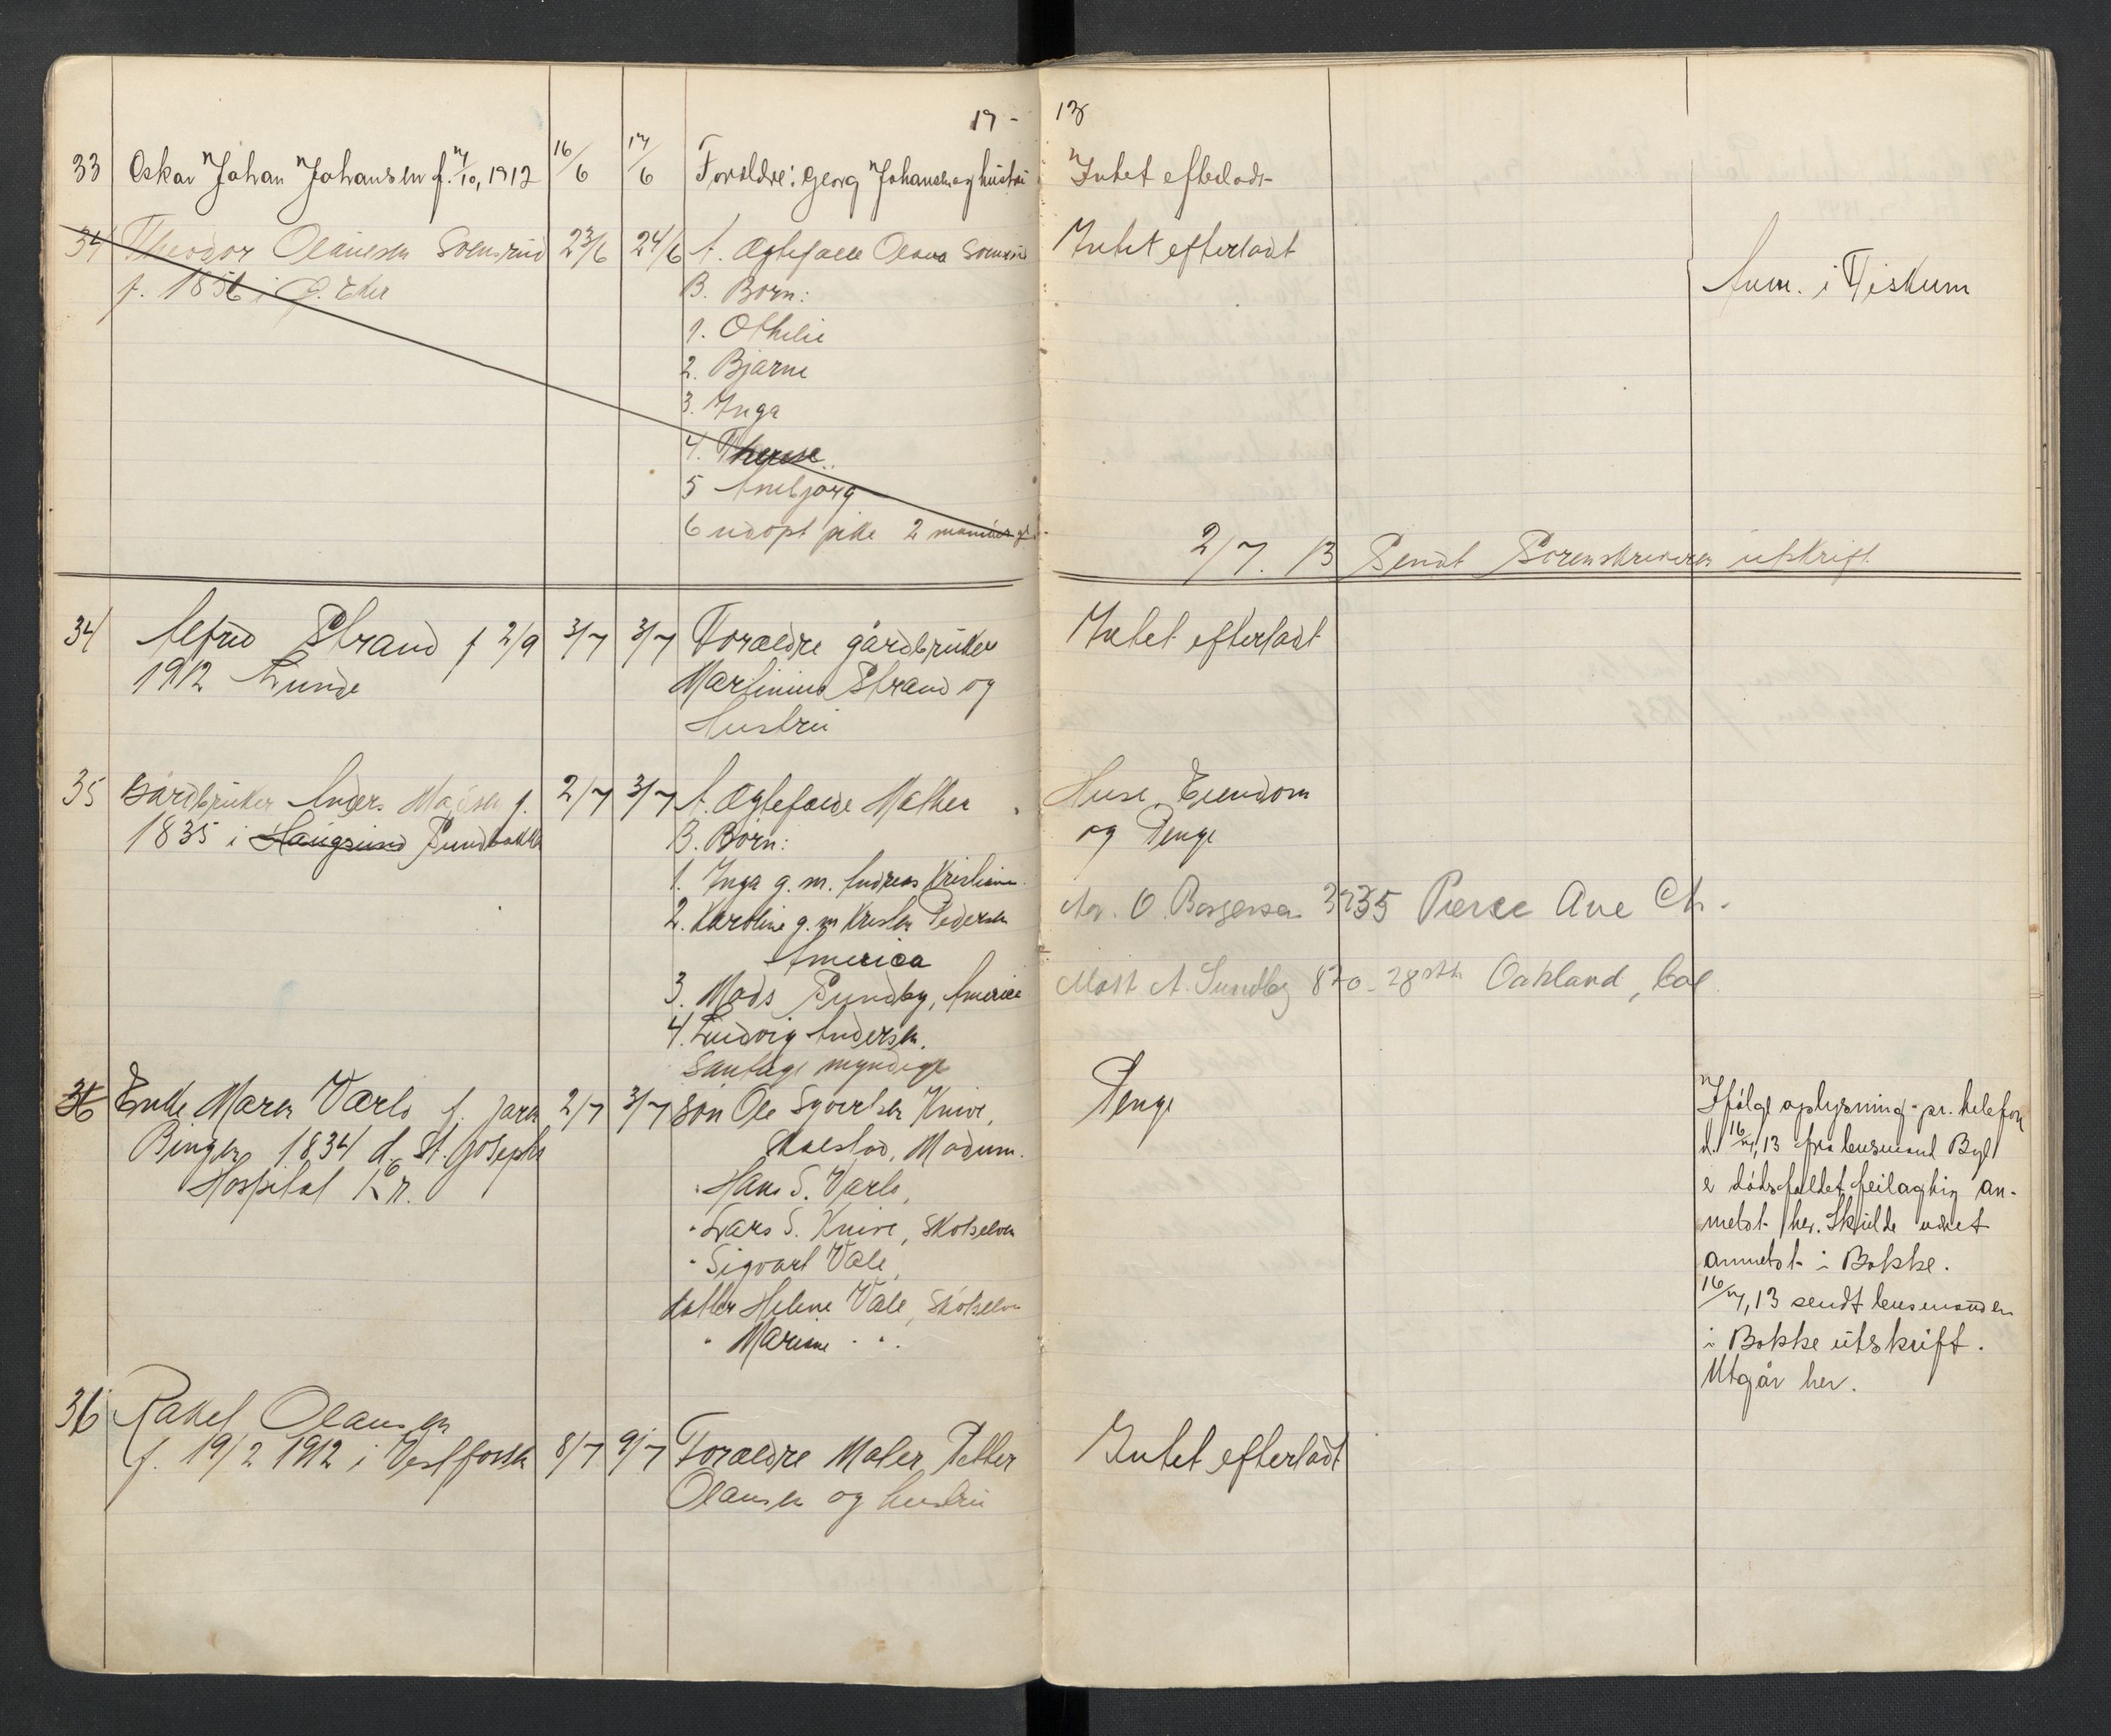 19 - 13
33 Oskar Johan Johansen f. 7/10, 1912 16/6 17/6 Forældre: Georg Johansen og hustru Intet efterladt
34 Theodor Olausen Sörnsrud 23/6 24/6 A. Ægtefælle Olava Sörnsrud Intet efterladt
f. 1856 i Ø. Eker B. Børn: Anm. i Fiskum
1. Othilie
2. Bjarne
3. Inga
4. Therese
5 Anbjørg
6 adopt pike 2 maaneder gl.
2/7. 13 Sendt Sorenskriveren utskrift
34 Alfred Strand f 2/9 3/7 3/7 Forældre gårdbruker Intet efterladt
1912 Lunde Martinius Strand og
Hustru
35 Gårdbruker Anders Madsen f. 2/7 3/7 A. Ægtefælde Mathea Huse, Eiendom
1835 i Haugsund Sundbakke B. Børn: og Penge
1. Inga g. m. Andreas Kristiansen
2. Karoline g. m Kristen Pedersen O. Borgersen 3235 Pierce Ave Ch.
America
3. Mads Sundby, America Matt A. Sundby 820 - 28 Oakland, Cal
4. Ludvig Andersen.
Samtlige myndige
36 Enke Maren Varlo f. Jaren 2/7 3/7 Søn Ole Syvertsen Knive, Penge Ifølge oplysning pr. telefon
Bingen 1834 d. St. Josephs Modum. d. 16/7, 13 fra lensmand Byl
Hospital Kr. Hans S. Varlo, er dødsfaldet feilagtig an-
" Lars S. Knive, Skotselven meldt her. Skulde været
" Sigvart Vale, anmeldt i Bakke.
datter Helene Vale, Skotselven 16/7, 13 sendt lensmanden
" Marine " " i Bakke utskrift.
Utgår her.
36 Rakel Olausen
f. 19/2 1912 i Vestfossen 8/7 9/7 Forældre Maler Petter Intet efterladt
Olausen og hustru